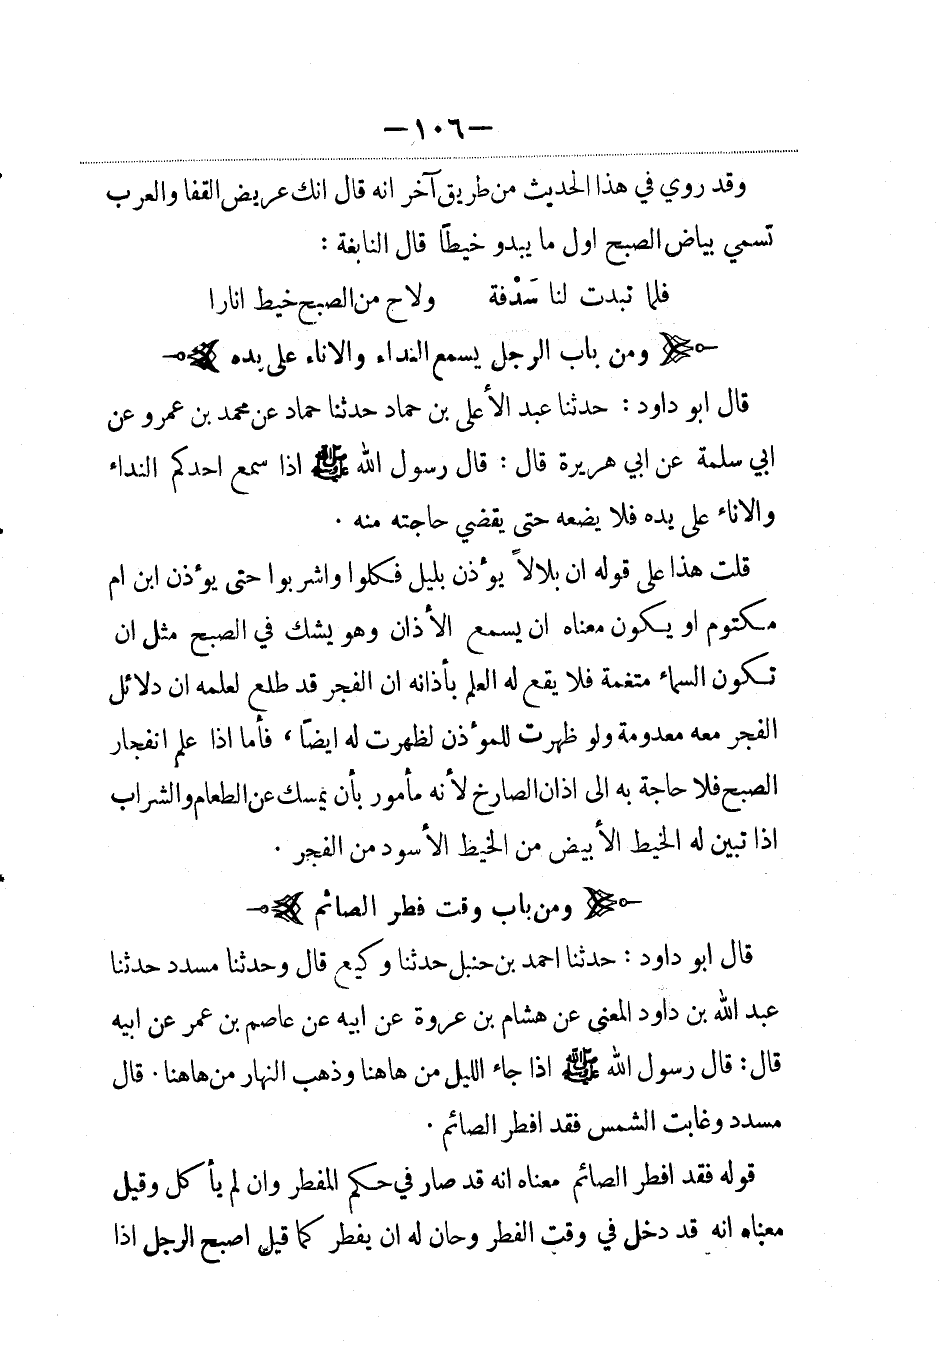 —١٠٦—
وقد روي في هذا الحديث من طريق آخر انه قال انك عريض القفا والعرب
تسمي بياض الصبح اول ما يبدو خيطاً قال النابغة :
فلما تبدت لنا سَدْفة ولاح من الصبح خيط انارا
ومن باب الرجل يسمع النداء والاناء على يده
قال ابو داود : حدثنا عبد الأعلى بن حماد حدثنا حماد عن محمد بن عمرو عن
ابي سلمة عن ابي هريرة قال : قال رسول الله ﷺ اذا سمع احدكم النداء
والاناء على يده فلا يضعه حتى يقضي حاجته منه ٠
قلت هذا على قوله ان بلالاً يوٴذن بليل فكلوا واشربوا حتى يوٴذن ابن ام
مكتوم او يكون معناه ان يسمع الأذان وهو يشك في الصبح مثل ان
تكون السماء متغمة فلا يقع له العلم بأذانه ان الفجر قد طلع لعلمه ان دلائل
الفجر معه معدومة ولو ظهرت للموٴذن لظهرت له ايضاً ، فأما اذا علم انفجار
الصبح فلا حاجة به الى اذان الصارخ لأنه مأمور بأن يمسك عن الطعام والشراب
اذا تبين له الخيط الأبيض من الخيط الأسود من الفجر ٠
ومن باب وقت فطر الصائم
قال ابو داود : حدثنا احمد بن حنبل حدثنا وكيع قال وحدثنا مسدد حدثنا
عبد الله بن داود المعنى عن هشام بن عروة عن ابيه عن عاصم بن عمر عن ابيه
قال : قال رسول الله ﷺ اذا جاء الليل من هاهنا وذهب النهار من هاهنا ٠ قال
مسدد وغابت الشمس فقد افطر الصائم ٠
قوله فقد افطر الصائم معناه انه قد صار في حكم المفطر وان لم يأكل وقيل
معناه انه قد دخل في وقت الفطر وحان له ان يفطر كما قيل اصبح الرجل اذا